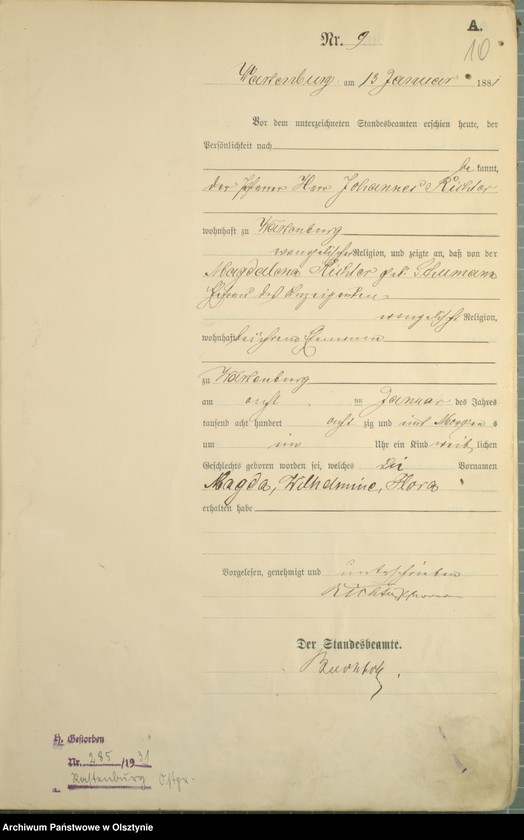 A.
10
Nr. 9
Wartenburg am 13 Januar 1881
Vor dem unterzeichneten Standesbeamten erschien heute, der
Persönlichkeit nach
be kannt,
der Pfarrer Herr Johannes Richter
wohnhaft zu Wartenburg
evangelischer Religion, und zeigte an, daß von der
Magdalena Richter geb. Schumann
Ehefrau des Anzeigenden
evangelischer Religion,
wohnhaft bei ihrem Ehemann
zu Wartenburg
am acht im Januar des Jahres
tausend acht hundert acht zig und eins Morgens
um ein Uhr ein Kind weib lichen
Geschlechts geboren worden sei, welches die Vornamen
Magda, Wilhelmine, Flora
erhalten habe
Vorgelesen, genehmigt und unterschrieben
Richter, Pfarrer
Der Standesbeamte.
H. Gestorben
Nr. 285/1931
Rastenburg Ostpr.
Archiwum Państwowe w Olsztynie